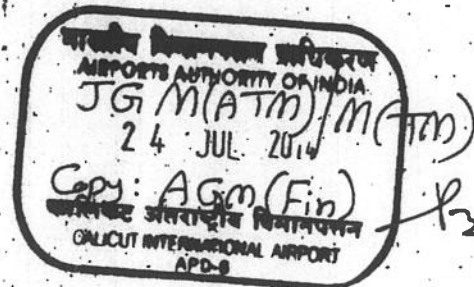 भारतीय विमानपत्तन प्राधिकरण
AIRPORTS AUTHORITY OF INDIA
JGM(ATM)/M(ATM)
24 JUL 2014
Copy: AGM(Fin)
कालिकट अंतराष्ट्रीय विमानपत्तन
CALICUT INTERNATIONAL AIRPORT